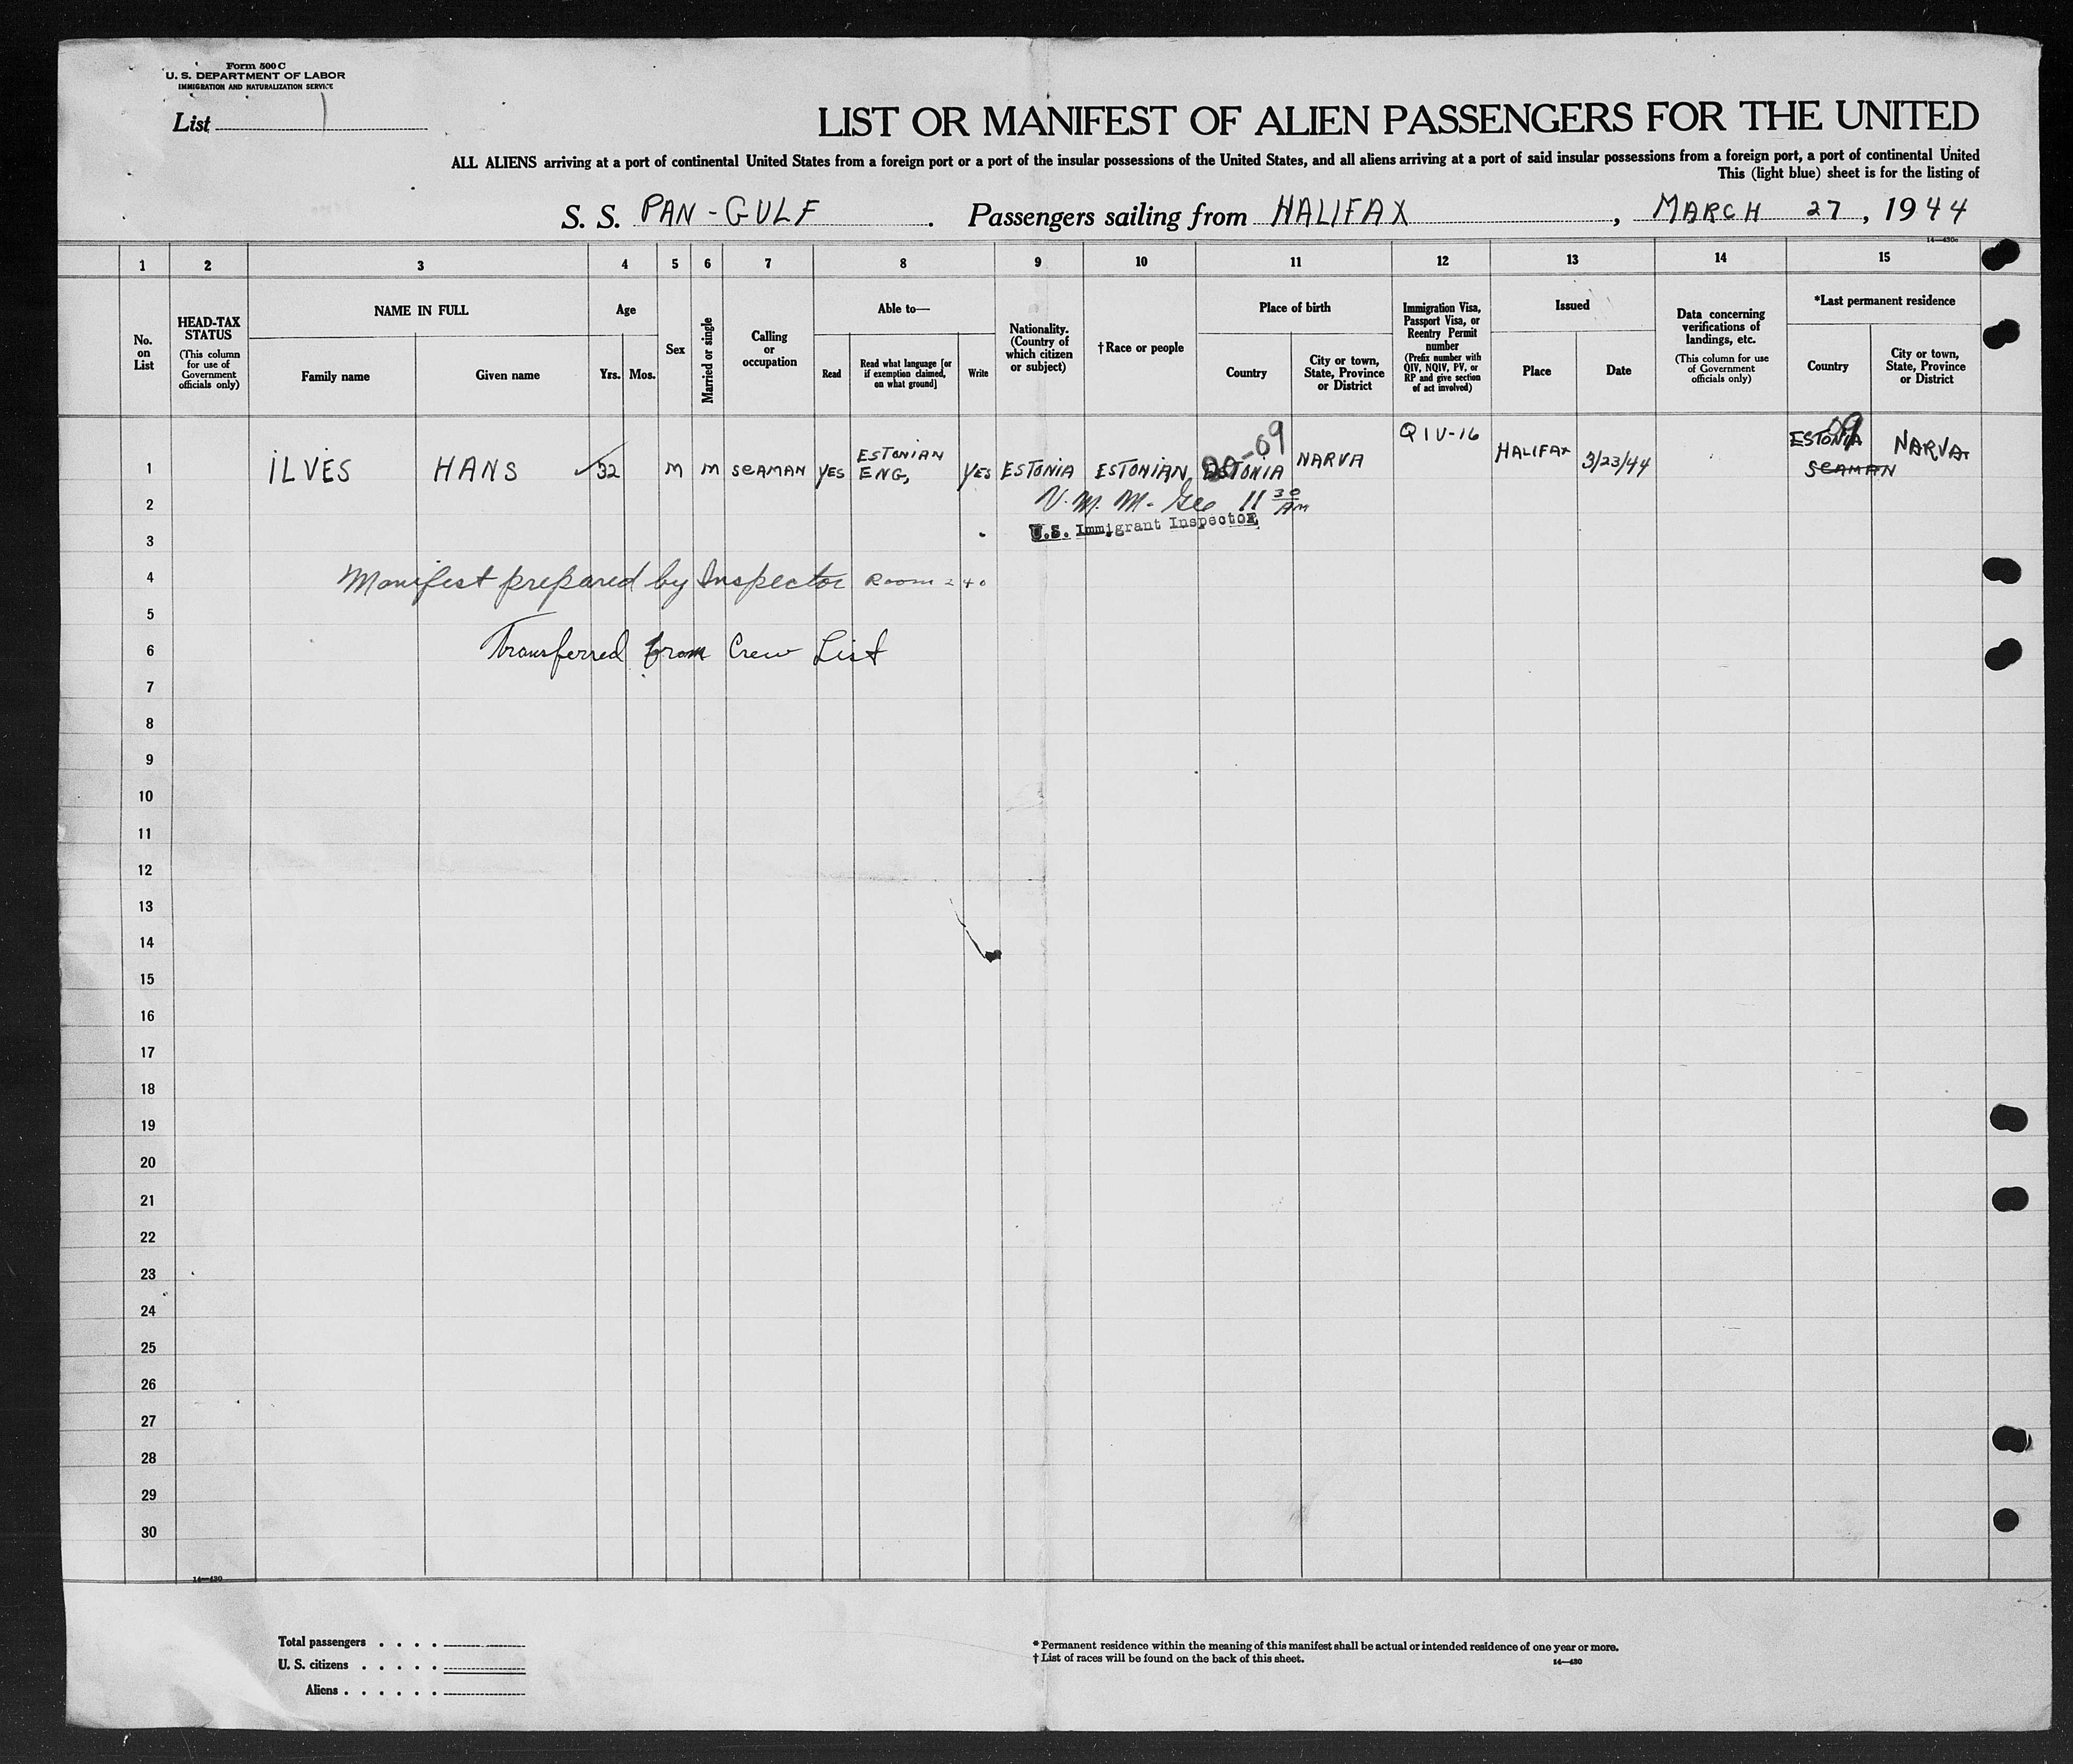 Form 500 C
U. S. DEPARTMENT OF LABOR
IMMIGRATION AND NATURALIZATION SERVICE
List 1
LIST OR MANIFEST OF ALIEN PASSENGERS FOR THE UNITED
ALL ALIENS arriving at a port of continental United States from a foreign port or a port of the insular possessions of the United States, and all aliens arriving at a port of said insular possessions from a foreign port, a port of continental United
This (light blue) sheet is for the listing of
S. S. PAN-GULF. Passengers sailing from HALIFAX, MARCH 27, 1944
14—430c
1 2 3 4 5 6 7 8 9 10 11 12 13 14 15
No. on List
HEAD-TAX STATUS (This column for use of Government officials only)
NAME IN FULL
Family name
Given name
Age
Yrs. Mos.
Sex
Married or single
Calling or occupation
Able to—
Read
Read what language [or if exemption claimed, on what ground]
Write
Nationality. (Country of which citizen or subject)
†Race or people
Place of birth
Country
City or town, State, Province or District
Immigration Visa, Passport Visa, or Reentry Permit number (Prefix number with QIV, NQIV, PV, or RP and give section of act involved)
Issued
Place
Date
Data concerning verifications of landings, etc. (This column for use of Government officials only)
*Last permanent residence
Country
City or town, State, Province or District
1 ILVES HANS 32 M M SEAMAN YES ESTONIAN ENG, YES ESTONIA ESTONIAN ESTONIA NARVA QIV-16 HALIFAX 3/23/44 ESTONIA SEAMAN NARVA
09
2 11 30 AM
3 U.S. Immigrant Inspector
4 Manifest prepared by Inspector Room 240
5
6 Transferred from Crew List
7
8
9
10
11
12
13
14
15
16
17
18
19
20
21
22
23
24
25
26
27
28
29
30
14—430
Total passengers . . . .
U. S. citizens . . . . .
Aliens . . . . . .
* Permanent residence within the meaning of this manifest shall be actual or intended residence of one year or more.
† List of races will be found on the back of this sheet.
14—430